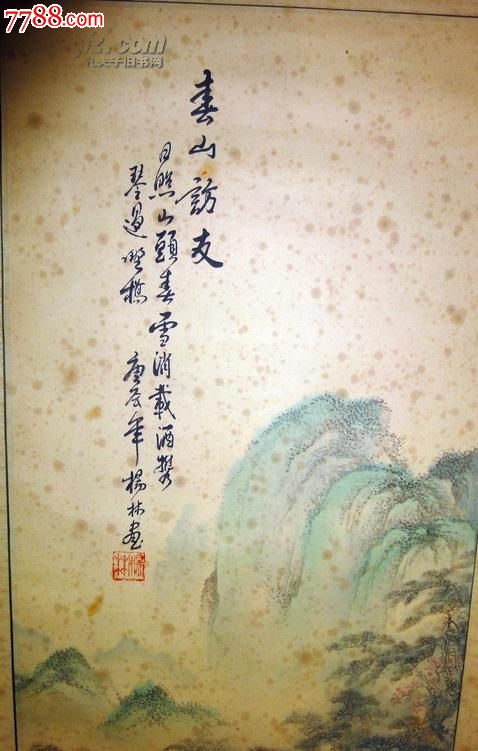 7788.com
孔夫子旧书网
春山訪友
日照山頭春雪消載酒攜
琴過野橋 庚辰年 楊林畫